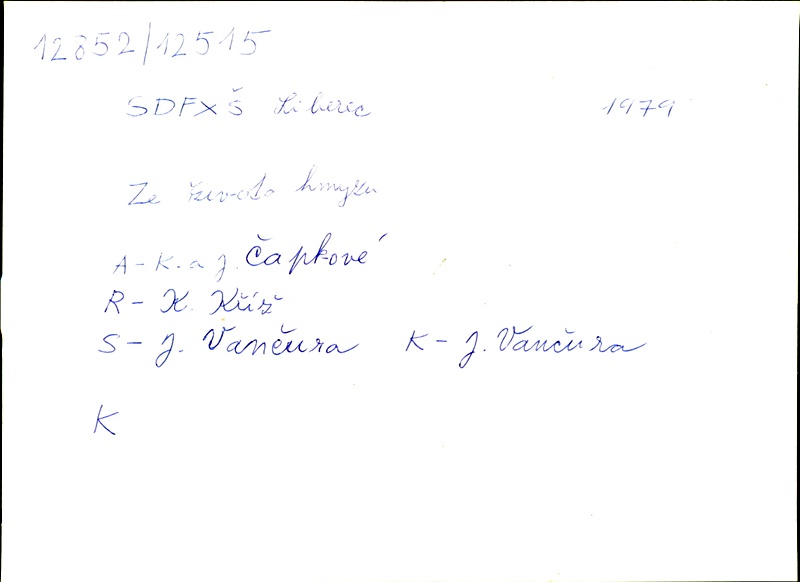 12852/12515
SDFXŠ Liberec 1979
Ze života hmyzu
A - K. a J. Čapkové
R - K. Kříž
S - J. Vančura K - J. Vančura
K